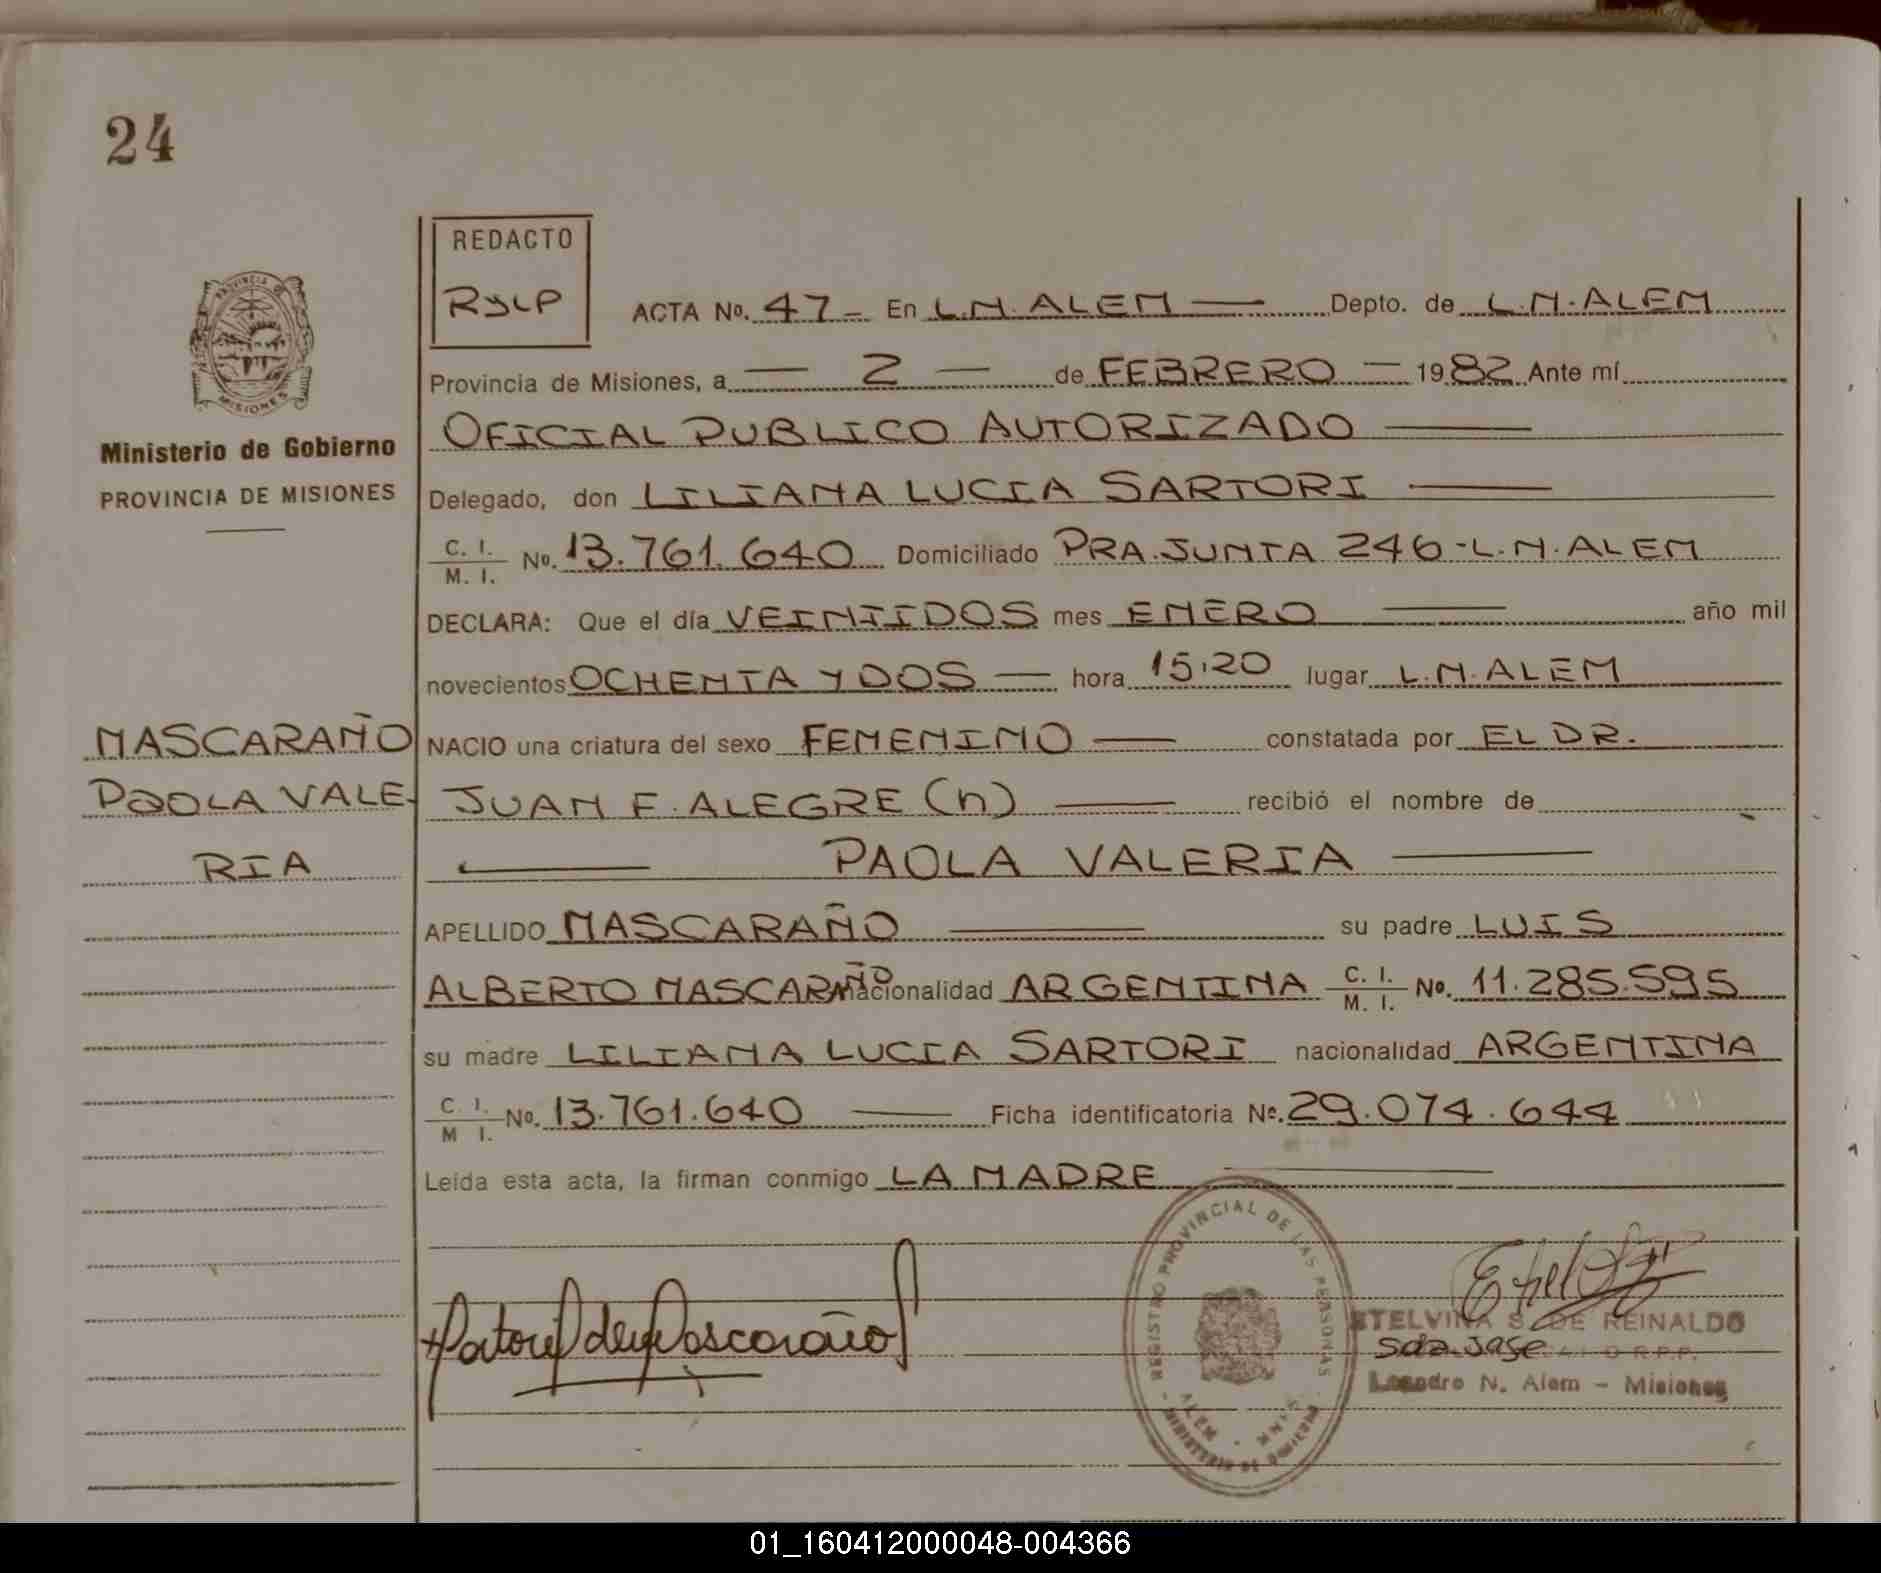 24
REDACTO
RYLP
PROVINCIA DE
MISIONES
Ministerio de Gobierno
PROVINCIA DE MISIONES
ACTA No. 47 - En L.N. ALEM — Depto. de L.N. ALEM
Provincia de Misiones, a — 2 — de FEBRERO — 1982 Ante mí
OFICIAL PUBLICO AUTORIZADO —
Delegado, don LILIANA LUCIA SARTORI —
C. I. / M. I. No. 13.761.640 Domiciliado PRA. JUNTA 246 - L.N. ALEM
DECLARA: Que el día VEINTIDOS mes ENERO — año mil
novecientos OCHENTA Y DOS — hora 15,20 lugar L.N. ALEM
NACIO una criatura del sexo FEMENINO — constatada por EL DR.
JUAN F. ALEGRE (h) — recibió el nombre de
— PAOLA VALERIA —
APELLIDO MASCARAÑO — su padre LUIS
ALBERTO MASCARAÑO nacionalidad ARGENTINA C. I. / M. I. No. 11.285.595
su madre LILIANA LUCIA SARTORI nacionalidad ARGENTINA
C. I. / M I. No. 13.761.640 — Ficha identificatoria No. 29.074.644
Leída esta acta, la firman conmigo LA MADRE —
MASCARAÑO
PAOLA VALE-
RIA
Sartori de Mascaraño
REGISTRO PROVINCIAL DE LAS PERSONAS
ALEM - MNES
ETELVINA S. DE REINALDO
R.P.P.
Leandro N. Alem - Misiones
01_160412000048-004366